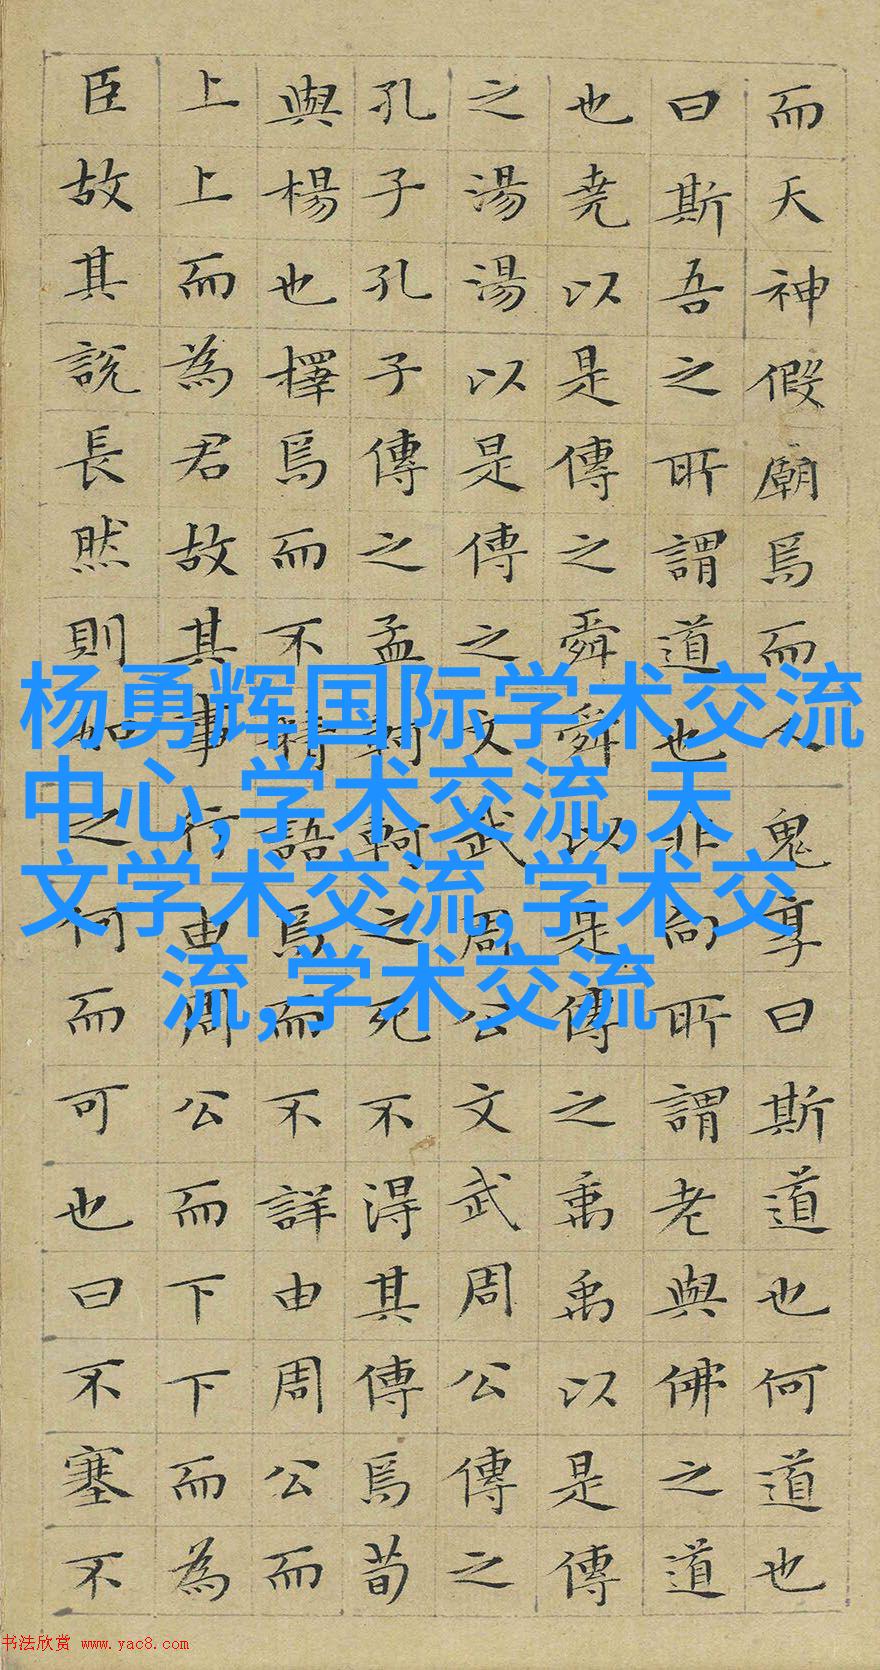 而天神假廟焉而人鬼享曰斯道也何道也
曰斯吾之所謂道也非向所謂老與佛之道
也堯以是傳之舜舜以是傳之禹禹以是傳
之湯湯以是傳之文武周公文武周公傳之
孔子孔子傳之孟軻軻之死不得其傳焉荀
與楊也擇焉而不精語焉而不詳由周公而
上上而為君故其事行由周公而下下而為
臣故其說長然則如之何而可也曰不塞不
杨勇辉国际学术交流
中心,学术交流,天
文学术交流,学术交
流,学术交流
书法欣赏 www.yac8.com